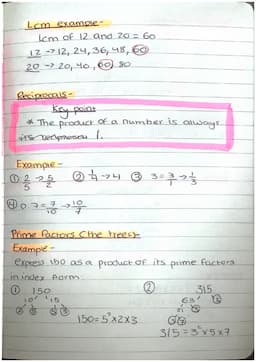 Lcm example-
lcm of 12 and 20 = 60
12 → 12, 24, 36, 48, 60
20 → 20, 40, 60, 80
Reciprocals-
Key point
* The product of a number is always
its reciprocal 1.
Example-
① 2/5 → 5/2 ② 1/4 → 4 ③ 3 = 3/1 → 1/3
④ 0.7 = 7/10 → 10/7
Prime Factors (the trees)-
Example-
Express 150 as a product of its prime factors
in index form.
① 150 ② 315
10 15 63 5
② ⑤ ⑤ ③ 21 ③
150 = 5²x2x3
315 = 3²x5x7